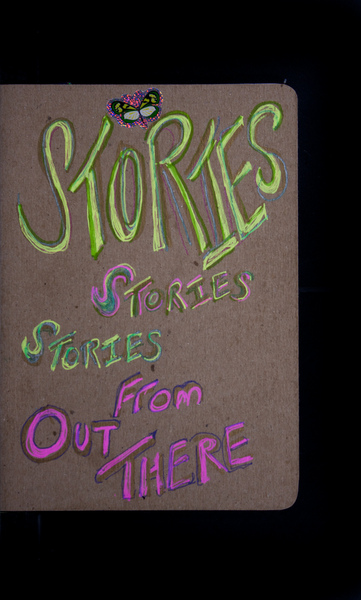 STORIES
STORIES
STORIES
From
OUT
THERE